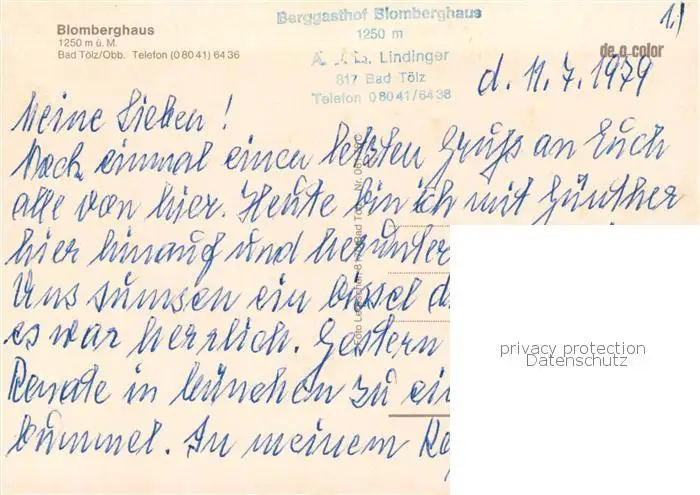 Blomberghaus
1250 m ü. M.
Bad Tölz/Obb. Telefon (0 80 41) 64 36
Berggasthof Blomberghaus
1250 m
Lindinger
817 Bad Tölz
Telefon 0 80 41/64 36
1.)
color
d. 11.7.1979
Meine Lieben!
Noch einmal einen letzten Gruß an Euch
alle von hier. Heute bin ich mit Günther
hier hinauf und herunter
Uns sumsen ein bissel
es war herrlich. Gestern
Renate in München zu
bummel. In meinem
Foto
Bad Tölz
privacy protection
Datenschutz